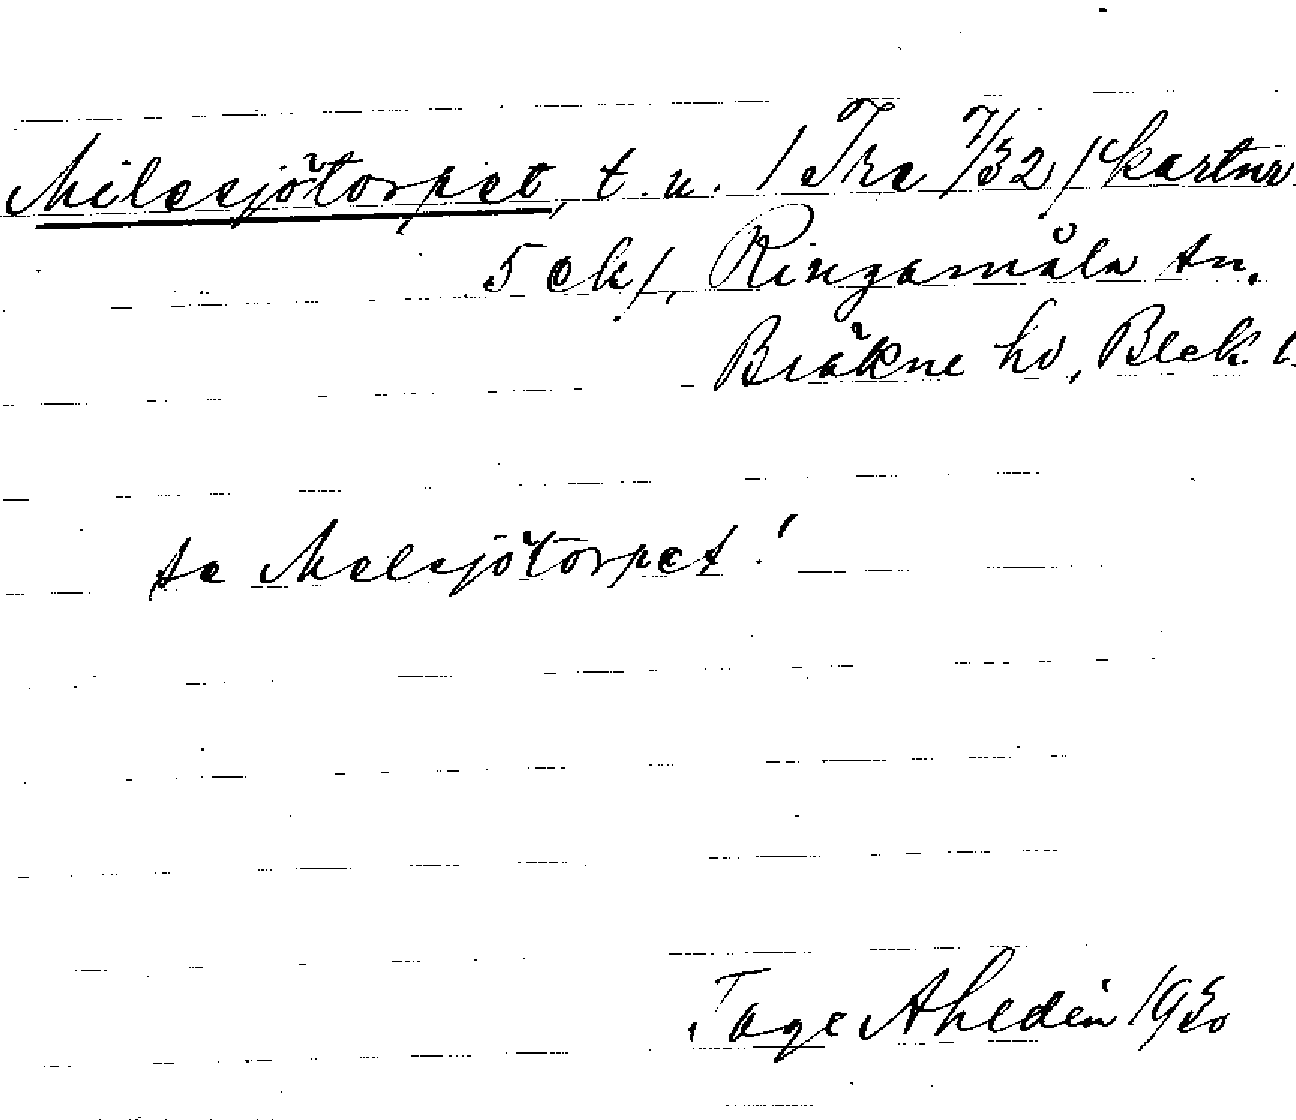 Milasjötorpet, t. u. /Tra 7/32/ kartnr
5 ek/, Ringamåla sn.
Bräkne hd, Blek. l.
se Melsjötorpet!
Tage Ahldén 1950